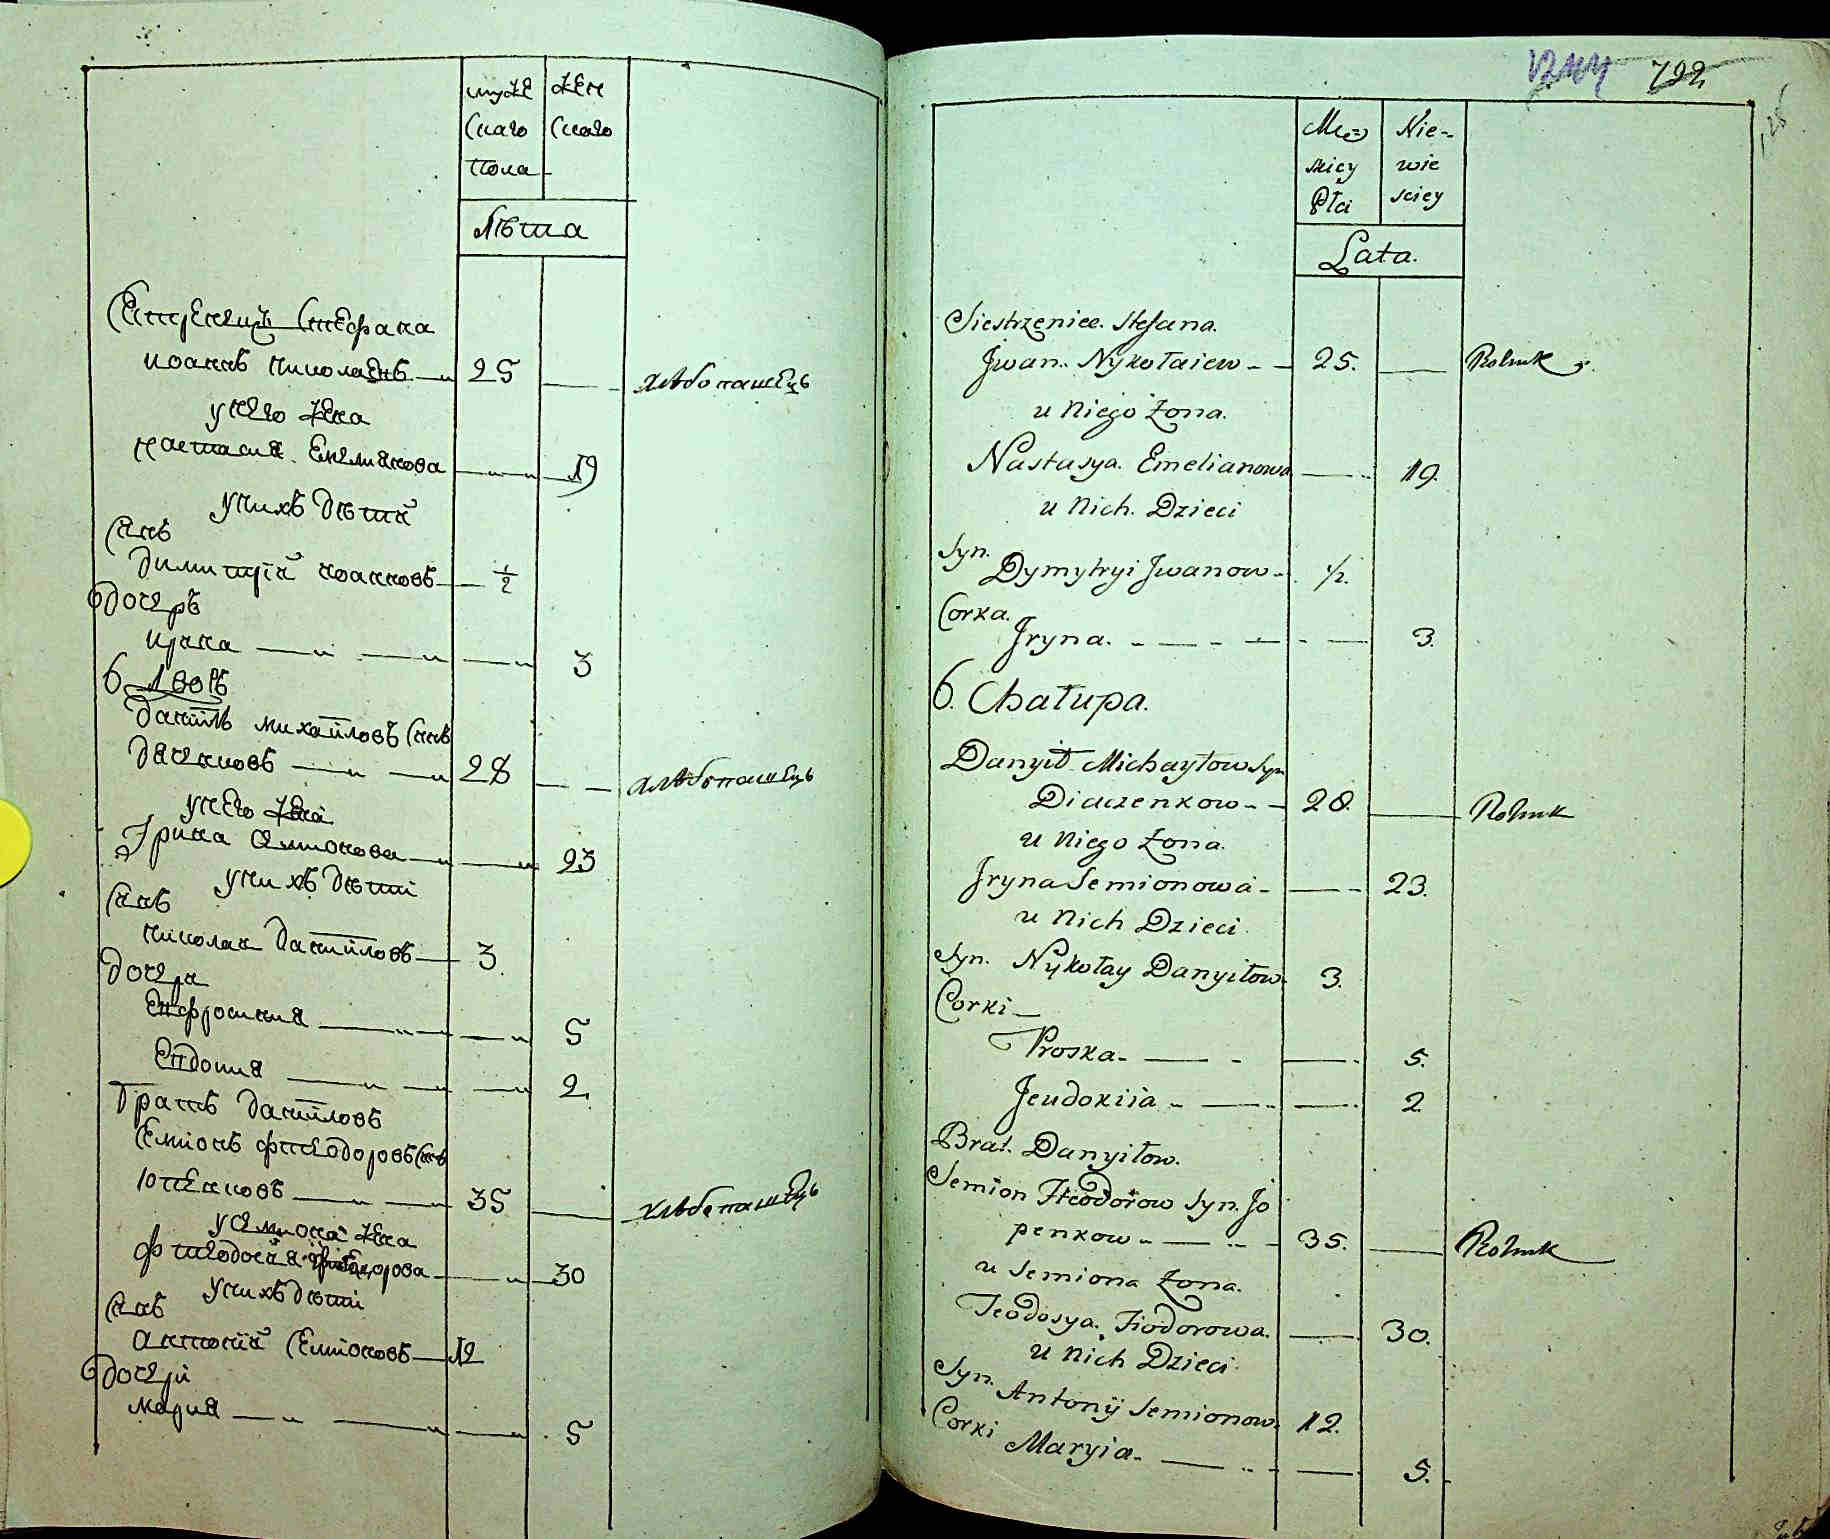 муже
скаго
пола
жен
скаго
лѣта
Сестренецъ Стефана
Иоаннъ Николаевъ 25 хлѣбопашецъ
у него жена
Настасия Емелиянова 19
у них дѣти
Синъ
Димитрій Иоанновъ 1/2
Дочерь
Ирина 3
6 Дворъ
Даніилъ Михаиловъ синъ
Дяченковъ 28 хлѣбопашецъ
у него жена
Ірина Семионова 23
у них дѣти
Синъ
Николай Данииловъ 3
Дочери
Евфросиния 5
Евдокия 2
Братъ Данииловъ
Семионъ Фтеодоровъ синъ
Юпенковъ 35 хлѣбопашецъ
у Семиона жена
Фтеодосия 30
у них дѣти
Синъ
Антоній Семіоновъ 12
Дочери
Мария 5
722
128
Męz
skiey
Płci
Nie-
wie
sciey
Lata.
Siestrzeniec Stefana.
Jwan Nykołaiew 25. Rolnik
u Niego Zona.
Nastasya Emelianowa 19.
u Nich Dzieci
Syn.
Dymytryi Jwanow 1/2.
Corka.
Jryna. 3.
6. Chałupa.
Danyił Michayłow Syn
Diaczenkow 28. Rolnik
u Niego Zona.
Jryna Semionowa 23.
u Nich Dzieci
Syn. Nykołay Danyiłow 3.
Corki
Proska 5.
Jeudokiia 2
Brat Danyiłow.
Semion Fteodorow Syn. Jo
penkow 35. Rolnik
u Semiona Zona.
Teodosya Fiodorowa. 30.
u Nich Dzieci
Syn. Antonij Semionow. 12.
Corki Maryia 5.